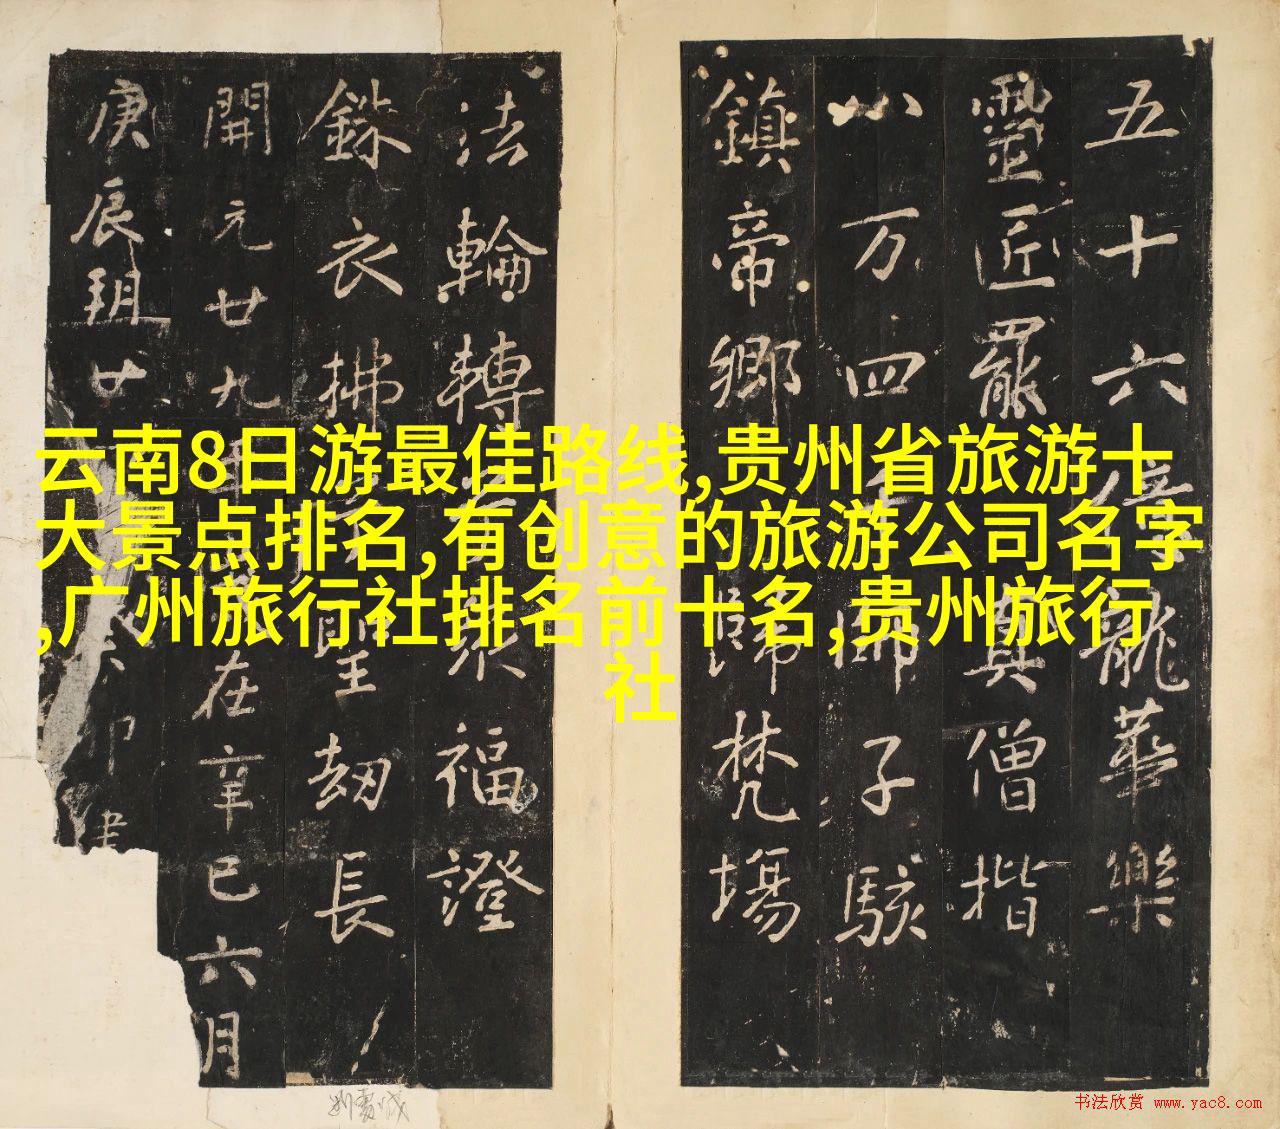 云南8日游最佳路线,贵州省旅游十
大景点排名,有创意的旅游公司名字
,广州旅行社排名前十名,贵州旅行
社
五十六龍華樂
靈匠罷真僧揩
八万四子駭
鎮帝鄉歸梵場
法輪轉眾福澄
銖衣拂聖劫長
開元廿九在辛巳六月
庚辰玥廿卯建
书法欣赏 www.yac8.com